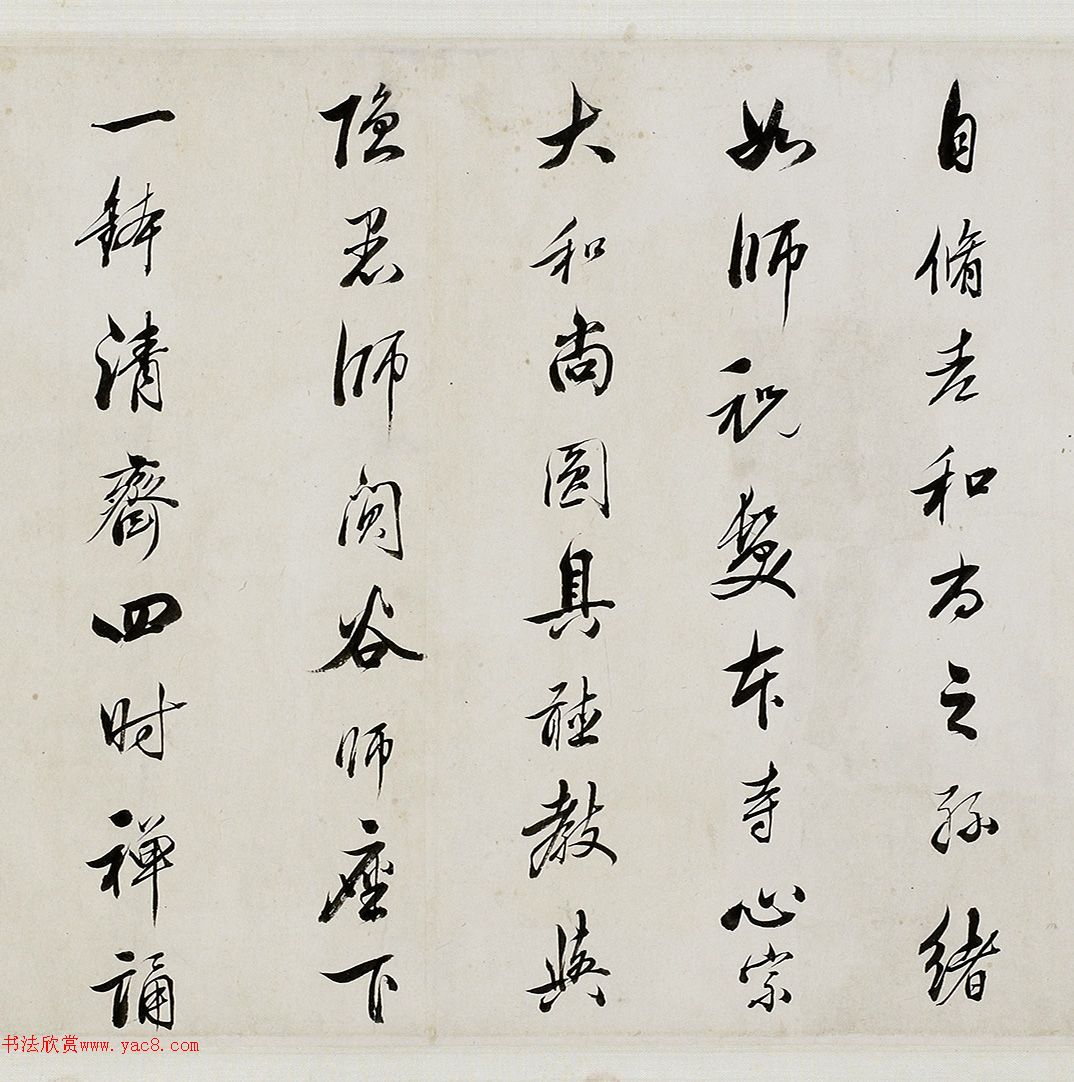 自脩老和尚之孫緒
如師祝髮本寺心宗
大和尚圓具聽教與
隱師聞谷師座下
一鉢清齋四時禪誦
书法欣赏www.yac8.com